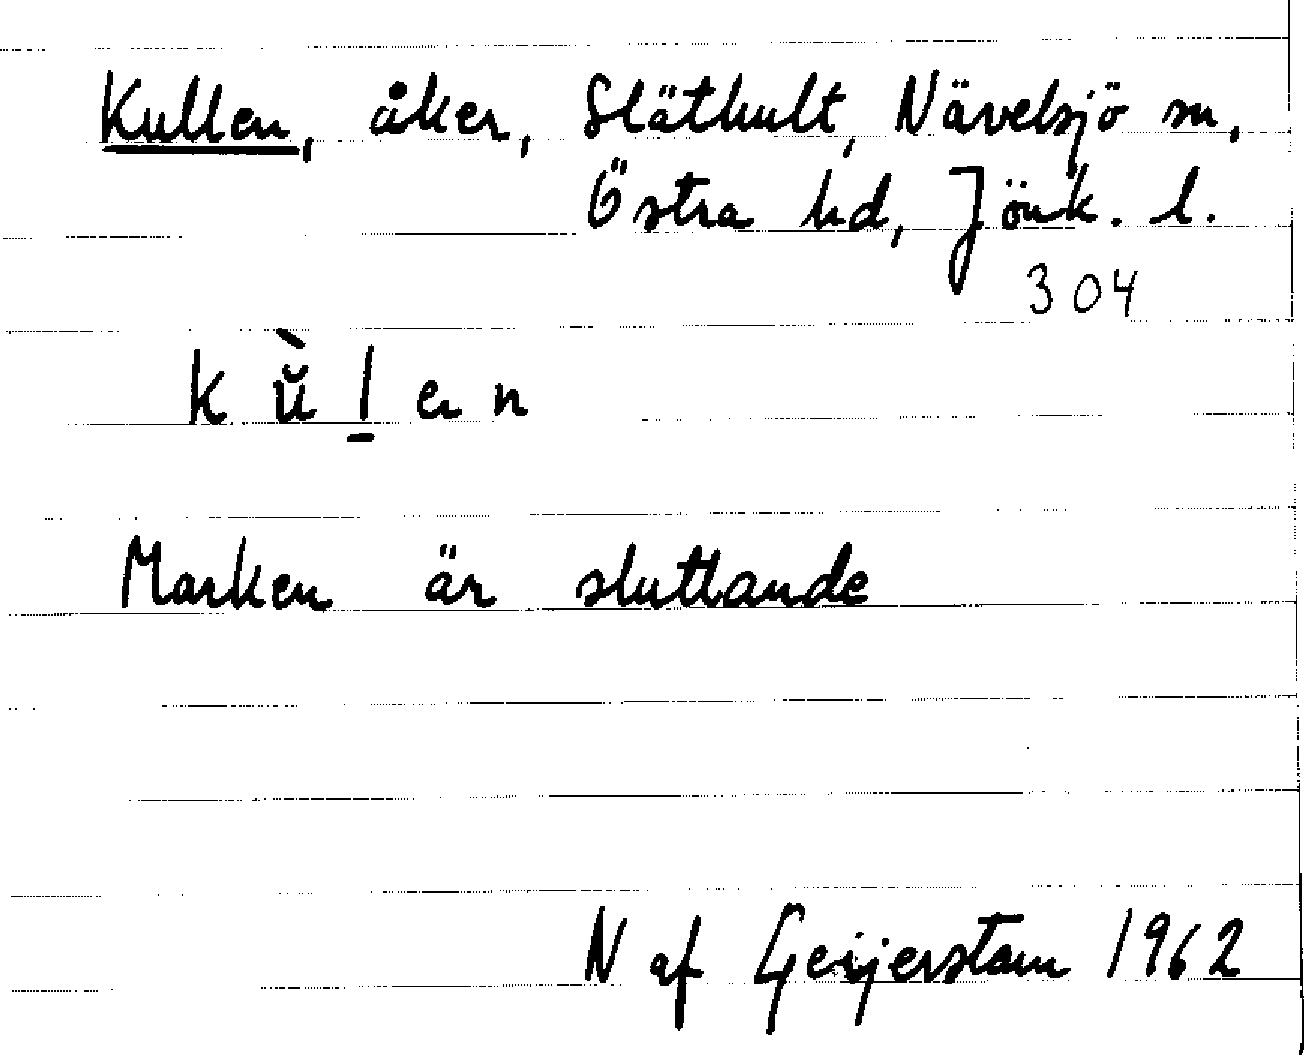 Kullen, åker, Släthult, Nävelsjö sn,
Östra hd, Jönk. l.
304
k ŭ̀ l̲ e n
Marken är sluttande
N af Geijerstam 1962